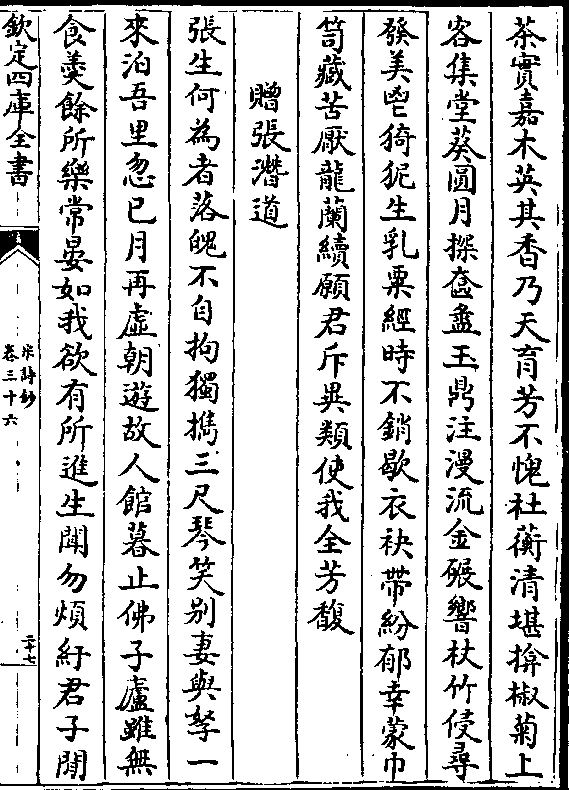 茶實嘉木英其香乃天育芳不愧杜蘅清堪揜椒菊上
客集堂葵圓月探奩盝玉鼎注漫流金碾響杖竹侵尋
發美鬯猗狔生乳粟經時不銷歇衣袂帶紛郁幸蒙巾
笥藏苦厭龍蘭續願君斥異類使我全芳馥
贈張潛道
張生何為者落魄不自拘獨擕三尺琴笑别妻與孥一
來泊吾里忽已月再虛朝遊故人館暮止佛子廬雖無
食羮餘所樂常晏如我欲有所進生聞勿煩紆君子聞
欽定四庫全書
宋詩鈔
卷三十六
二十七